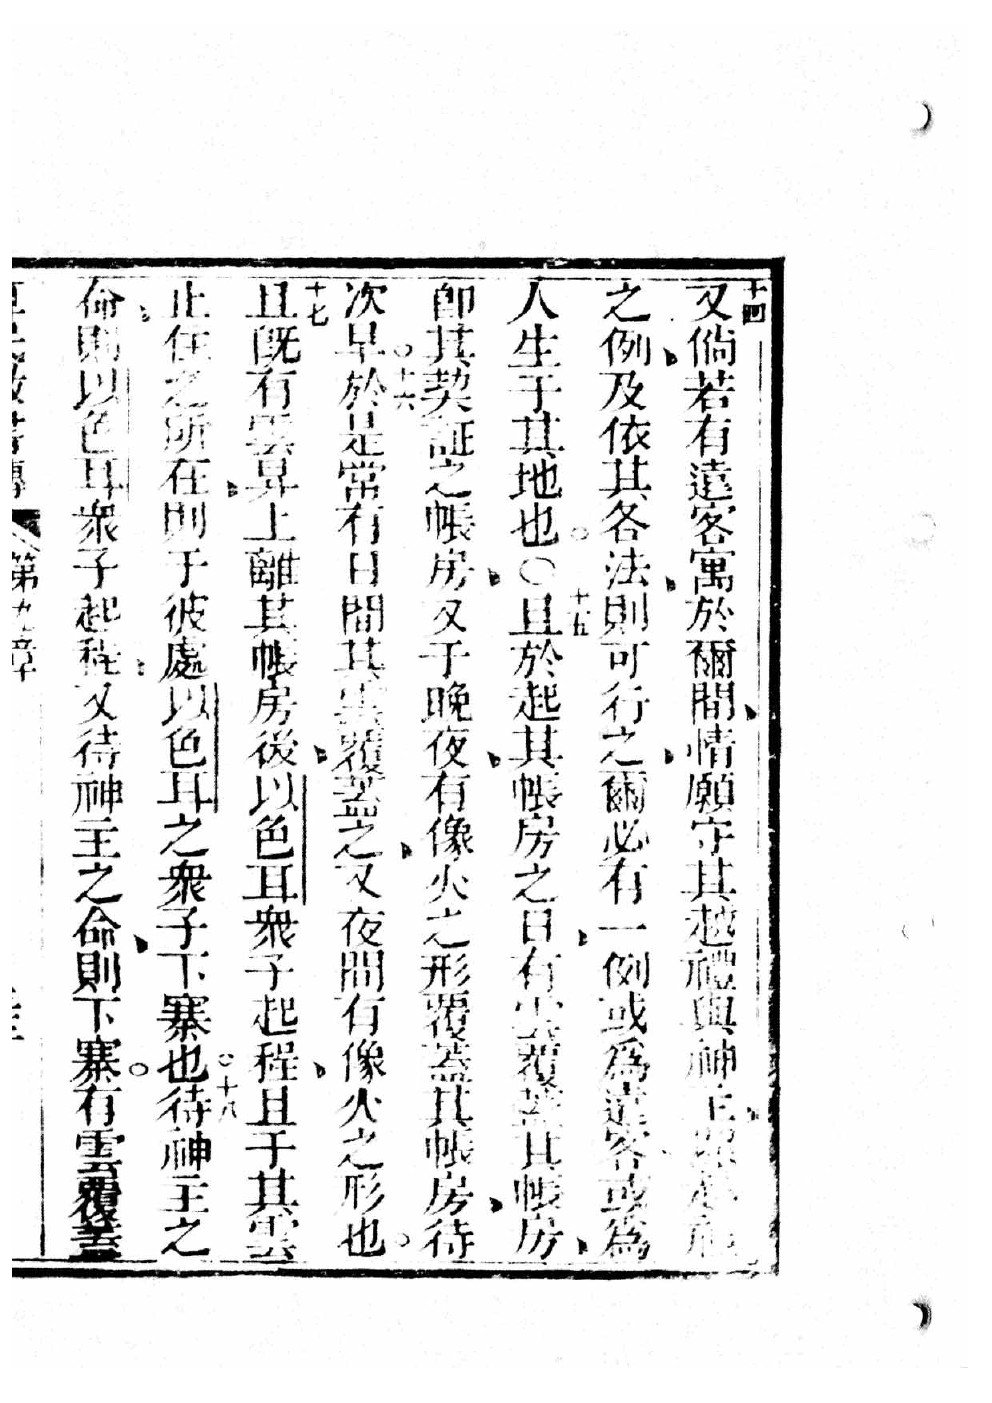 十四
又倘若有遠客寓於爾間情願守其越禮與神主照越禮
之例及依其各法則可行之爾必有一例或為遠客或為
人生于其地也○十五且於起其帳房之日有雲覆蓋其帳房
即其契証之帳房又于晚夜有像火之形覆蓋其帳房待
次早○十六於是常有日間其雲覆蓋之又夜間有像火之形也
十七
且既有雲昇上離其帳房後以色耳衆子起程且于其雲
止住之所在則于彼處以色耳之衆子下寨也○十八待神主之
命則以色耳衆子起程又待神主之命則下寨有雲覆蓋
第九章